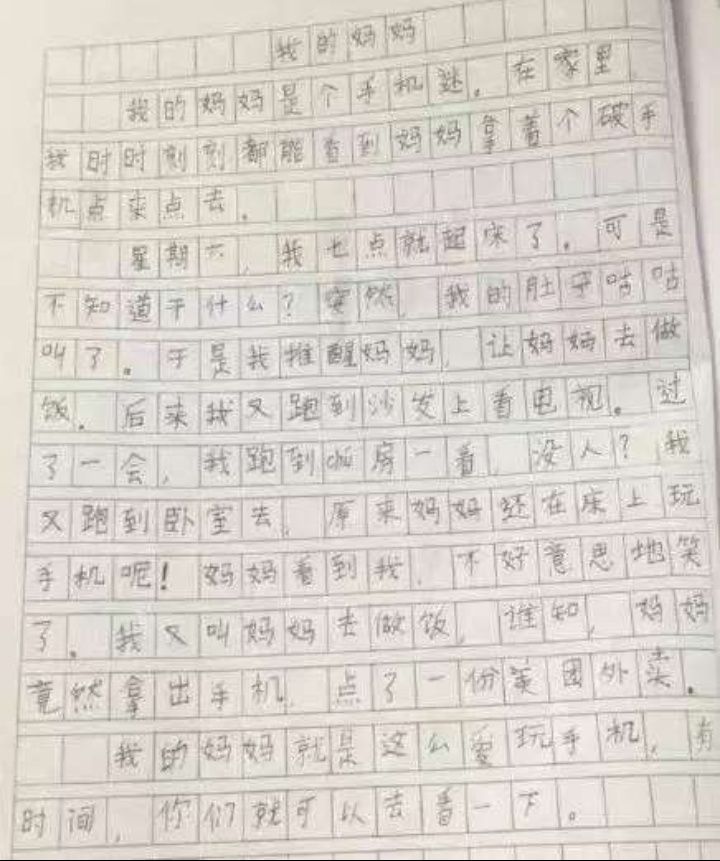 我的妈妈
我的妈妈是个手机迷。在家里
我时时刻刻都能看到妈妈拿着个破手
机点来点去。
星期六,我七点就起床了。可是
不知道干什么?突然,我的肚子咕咕
叫了。于是我推醒妈妈,让妈妈去做
饭。后来我又跑到沙发上看电视。过
了一会,我跑到厨房一看,没人?我
又跑到卧室去,原来妈妈还在床上玩
手机呢!妈妈看到我,不好意思地笑
了。我又叫妈妈去做饭,谁知,妈妈
竟然拿出手机,点了一份美团外卖。
我的妈妈就是这么爱玩手机,有
时间,你们就可以去看一下。